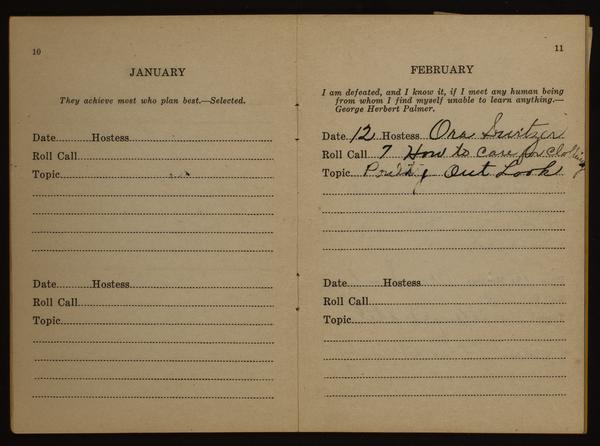 10
JANUARY
They achieve most who plan best.—Selected.
Date..........Hostess
Roll Call
Topic
Date..........Hostess
Roll Call
Topic
11
FEBRUARY
I am defeated, and I know it, if I meet any human being
from whom I find myself unable to learn anything.—
George Herbert Palmer.
Date 12 Hostess Ora Switzer
Roll Call 7 How to care for clothing
Topic Out Look
Date..........Hostess
Roll Call
Topic